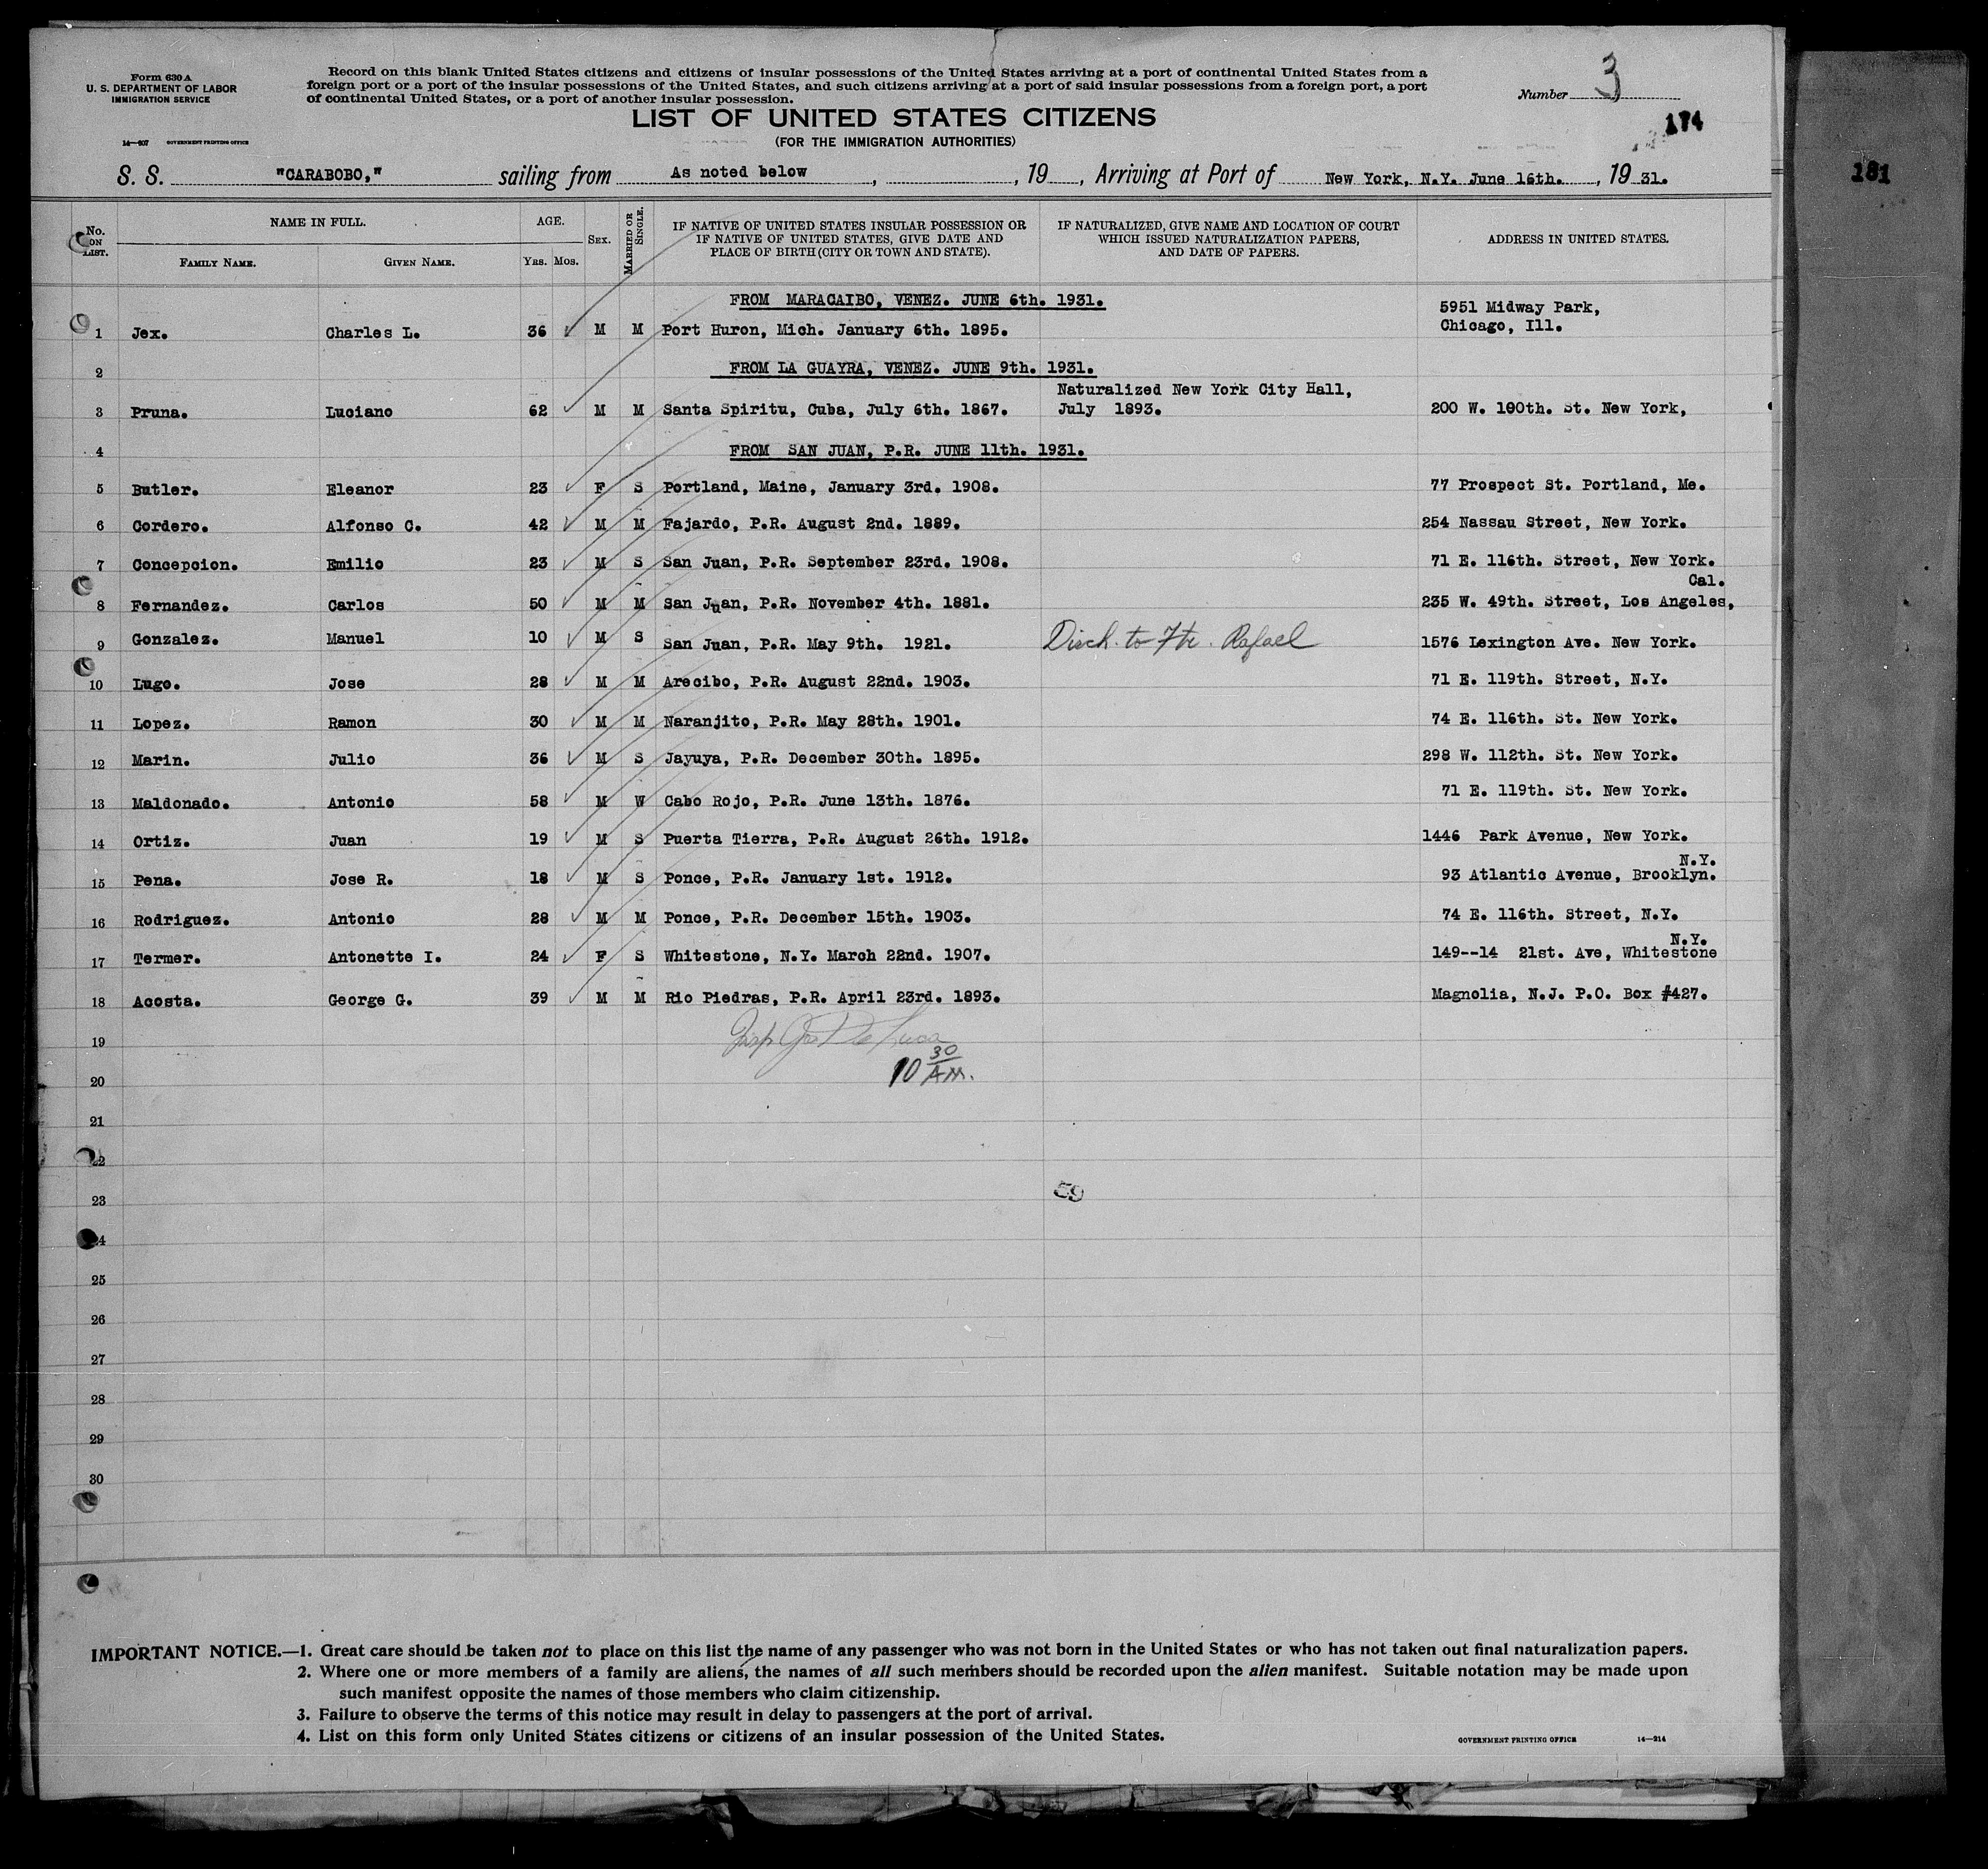 Form 630 A
U. S. DEPARTMENT OF LABOR
IMMIGRATION SERVICE
14—207 GOVERNMENT PRINTING OFFICE
Record on this blank United States citizens and citizens of insular possessions of the United States arriving at a port of continental United States from a
foreign port or a port of the insular possessions of the United States, and such citizens arriving at a port of said insular possessions from a foreign port, a port
of continental United States, or a port of another insular possession.
Number 3
174
181
LIST OF UNITED STATES CITIZENS
(FOR THE IMMIGRATION AUTHORITIES)
S. S. "CARABOBO," sailing from As noted below , , 19 , Arriving at Port of New York, N.Y. June 16th. , 19 31.
No. ON LIST. NAME IN FULL. AGE. SEX. MARRIED OR SINGLE. IF NATIVE OF UNITED STATES INSULAR POSSESSION OR IF NATIVE OF UNITED STATES, GIVE DATE AND PLACE OF BIRTH (CITY OR TOWN AND STATE). IF NATURALIZED, GIVE NAME AND LOCATION OF COURT WHICH ISSUED NATURALIZATION PAPERS, AND DATE OF PAPERS. ADDRESS IN UNITED STATES.
FAMILY NAME. GIVEN NAME. YRS. MOS.
FROM MARACAIBO, VENEZ. JUNE 6th. 1931.
5951 Midway Park,
1 Jex. Charles L. 36 M M Port Huron, Mich. January 6th. 1895. Chicago, Ill.
2 FROM LA GUAYRA, VENEZ. JUNE 9th. 1931.
Naturalized New York City Hall,
3 Pruna. Luciano 62 M M Santa Spiritu, Cuba, July 6th. 1867. July 1893. 200 W. 100th. St. New York,
4 FROM SAN JUAN, P.R. JUNE 11th. 1931.
5 Butler. Eleanor 23 F S Portland, Maine, January 3rd. 1908. 77 Prospect St. Portland, Me.
6 Cordero. Alfonso C. 42 M M Fajardo, P.R. August 2nd. 1889. 254 Nassau Street, New York.
7 Concepcion. Emilio 23 M S San Juan, P.R. September 23rd. 1908. 71 E. 116th. Street, New York.
Cal.
8 Fernandez. Carlos 50 M M San Juan, P.R. November 4th. 1881. 235 W. 49th. Street, Los Angeles,
9 Gonzalez. Manuel 10 M S San Juan, P.R. May 9th. 1921. Disch. to Fth. Rafael 1576 Lexington Ave. New York.
10 Lugo. Jose 28 M M Arecibo, P.R. August 22nd. 1903. 71 E. 119th. Street, N.Y.
11 Lopez. Ramon 30 M M Naranjito, P.R. May 28th. 1901. 74 E. 116th. St. New York.
12 Marin. Julio 36 M S Jayuya, P.R. December 30th. 1895. 298 W. 112th. St. New York.
13 Maldonado. Antonio 58 M W Cabo Rojo, P.R. June 13th. 1876. 71 E. 119th. St. New York.
14 Ortiz. Juan 19 M S Puerta Tierra, P.R. August 26th. 1912. 1446 Park Avenue, New York.
N.Y.
15 Pena. Jose R. 18 M S Ponce, P.R. January 1st. 1912. 93 Atlantic Avenue, Brooklyn.
16 Rodriguez. Antonio 28 M M Ponce, P.R. December 15th. 1903. 74 E. 116th. Street, N.Y.
N.Y.
17 Termer. Antonette I. 24 F S Whitestone, N.Y. March 22nd. 1907. 149--14 21st. Ave, Whitestone
18 Acosta. George G. 39 M M Rio Piedras, P.R. April 23rd. 1893. Magnolia, N.J. P.O. Box #427.
19
10 30 A.M.
20
21
22
23 59
24
25
26
27
28
29
30
IMPORTANT NOTICE.—1. Great care should be taken not to place on this list the name of any passenger who was not born in the United States or who has not taken out final naturalization papers.
2. Where one or more members of a family are aliens, the names of all such members should be recorded upon the alien manifest. Suitable notation may be made upon
such manifest opposite the names of those members who claim citizenship.
3. Failure to observe the terms of this notice may result in delay to passengers at the port of arrival.
4. List on this form only United States citizens or citizens of an insular possession of the United States.
GOVERNMENT PRINTING OFFICE 14—214